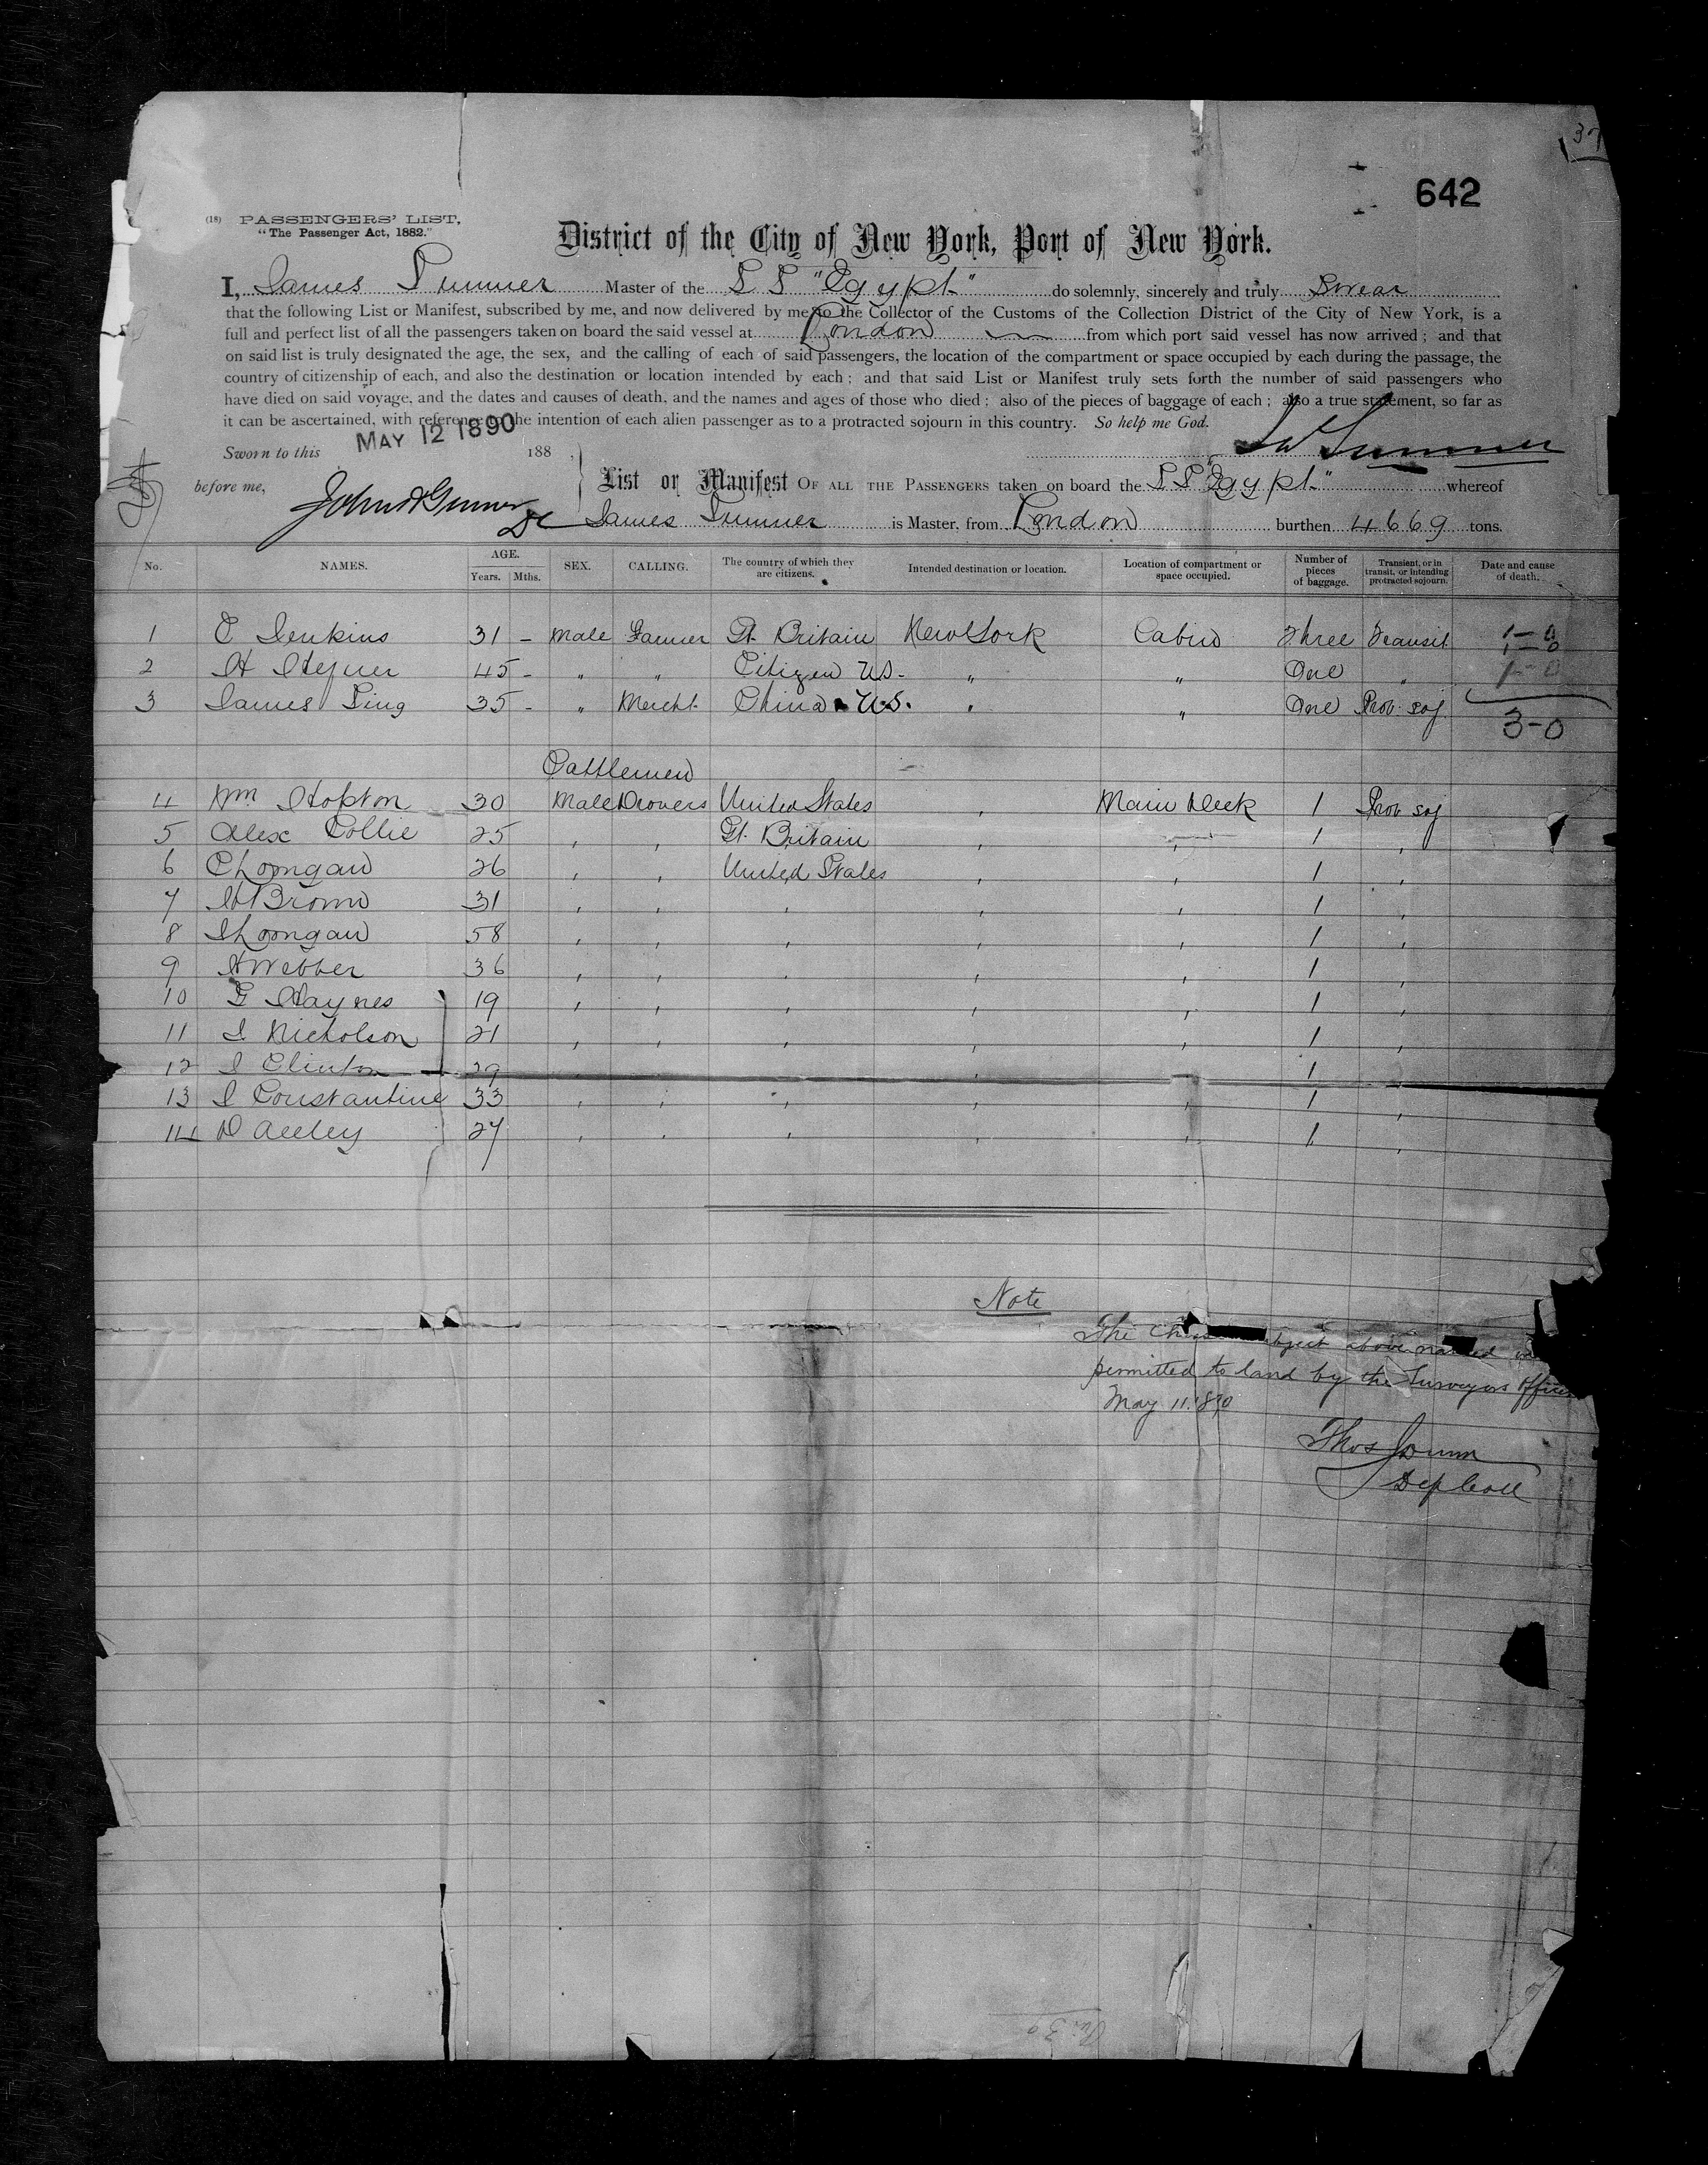 37
642
(18) PASSENGERS' LIST,
"The Passenger Act, 1882."
District of the City of New York, Port of New York.
I, James Sumner Master of the S S "Egypt" do solemnly, sincerely and truly Swear
that the following List or Manifest, subscribed by me, and now delivered by me to the Collector of the Customs of the Collection District of the City of New York, is a
full and perfect list of all the passengers taken on board the said vessel at London from which port said vessel has now arrived; and that
on said list is truly designated the age, the sex, and the calling of each of said passengers, the location of the compartment or space occupied by each during the passage, the
country of citizenship of each, and also the destination or location intended by each; and that said List or Manifest truly sets forth the number of said passengers who
have died on said voyage, and the dates and causes of death, and the names and ages of those who died; also of the pieces of baggage of each; also a true statement, so far as
it can be ascertained, with reference to the intention of each alien passenger as to a protracted sojourn in this country. So help me God.
MAY 12 1890
Sworn to this 188 , Sumner
before me, List or Manifest OF ALL THE PASSENGERS taken on board the S S "Egypt" whereof
James Sumner is Master, from London burthen 4669 tons.
No. NAMES. AGE. Years. Mths. SEX. CALLING. The country of which they are citizens. Intended destination or location. Location of compartment or space occupied. Number of pieces of baggage. Transient, or in transit, or intending protracted sojourn. Date and cause of death.
1 C Jenkins 31 - Male Farmer Gt. Britain New York Cabin Three Transit 1-0
2 H Hegner 45 - " " Citizen US. " " One " 1-0
3 James Sing 35 - " Mercht. China U.S. " " One Prot. soj 3-0
Cattlemen
4 Wm Hopton 30 Male Drovers United States , Main Deck 1 Prot soj
5 Alex Collie 25 , , Gt. Britain , , 1 ,
6 C Loongan 26 , , United States , , 1 ,
7 H Brown 31 , , , , , 1 ,
8 J Loongan 58 , , , , , 1 ,
9 H Webber 36 , , , , , 1 ,
10 G Haynes 19 , , , , , 1 ,
11 J Nicholson 21 , , , , , 1 ,
12 J Clinton 29 , 1
13 J Constantine 33 , , , , , 1 ,
14 D 27 , , , , , 1 ,
Note
The subject above named
permitted to land by the Surveyors Office
May 11. 1890
Thos Dunn
Dep Coll
No. 30